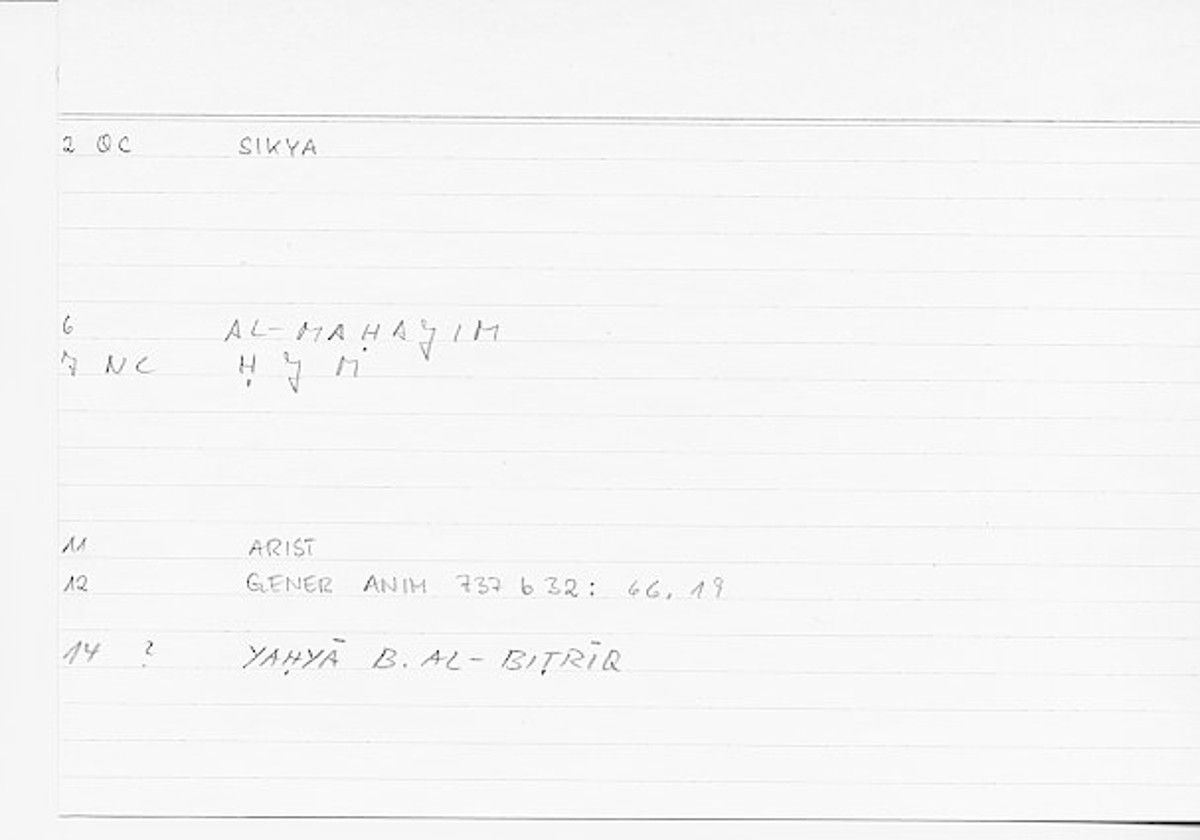 2 QC SIKYA
6 AL-MAḤAJIM
7 NC Ḥ J M
11 ARIST
12 GENER ANIM 737 b 32: 66, 19
14 ? YAḤYĀ B. AL-BIṬRĪQ